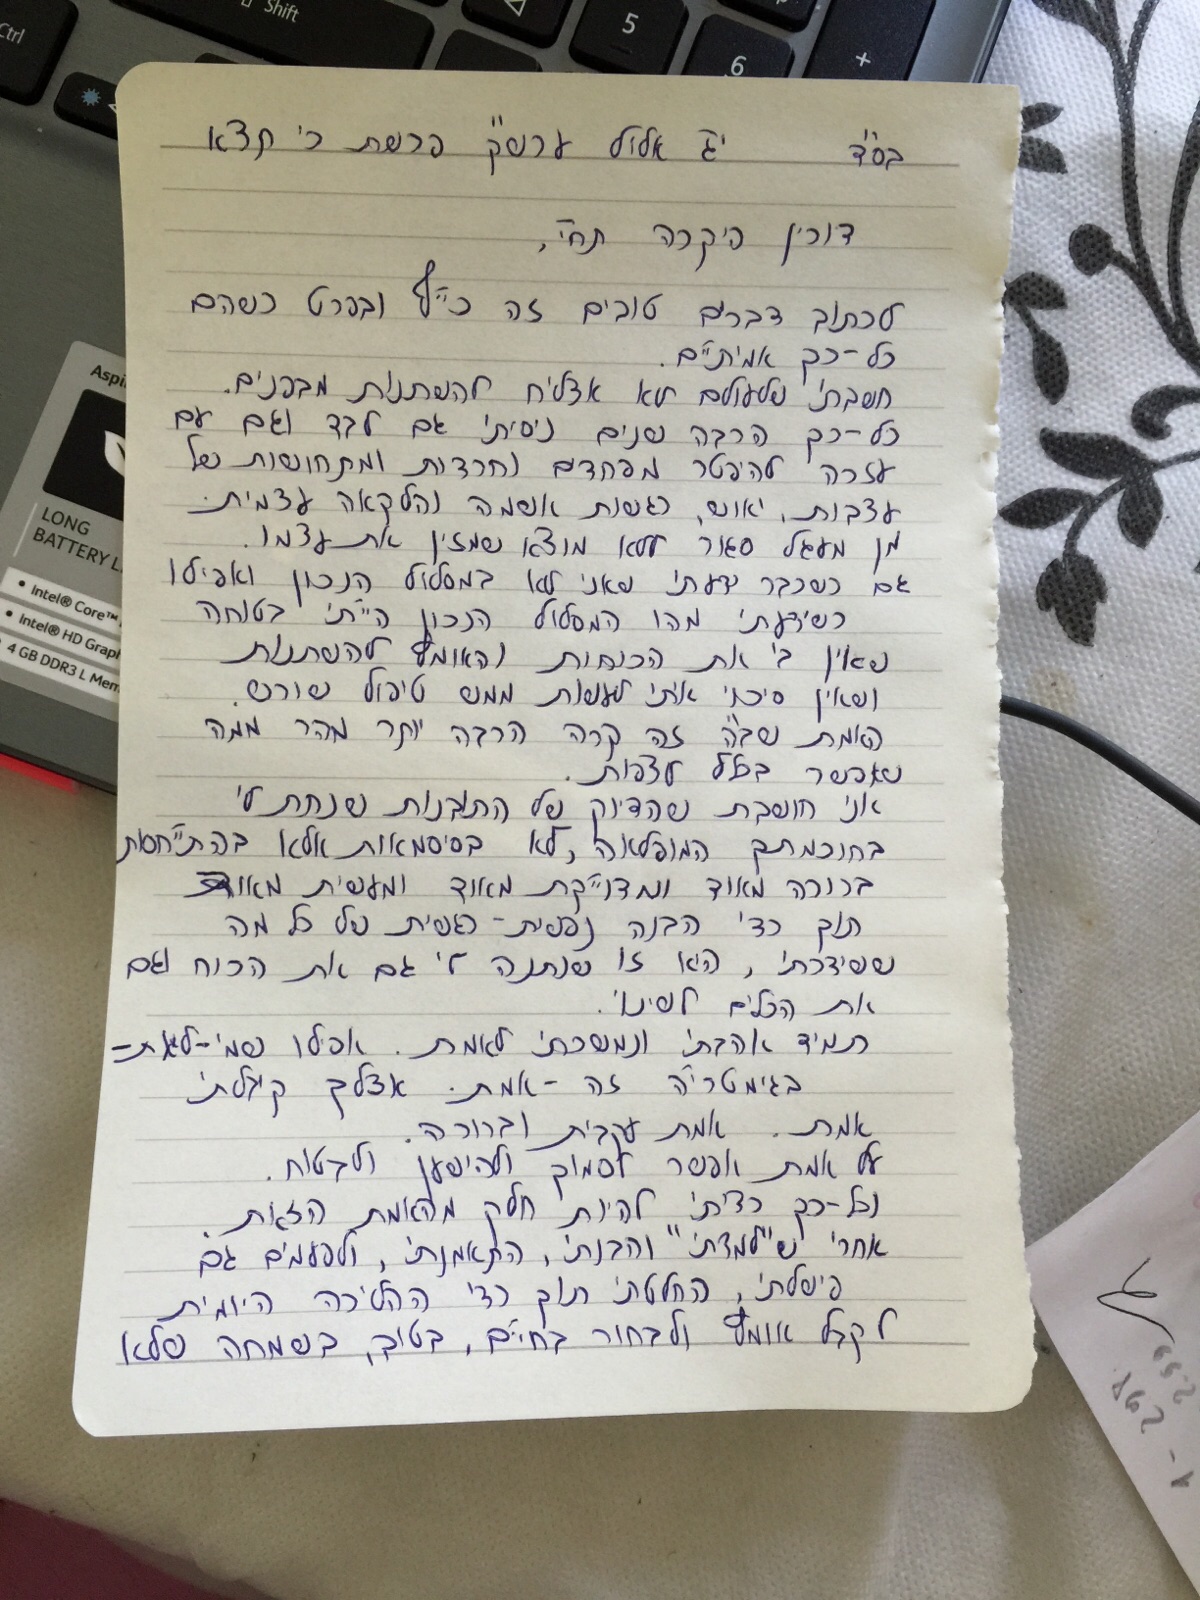 Ctrl
Shift
5
6
+
Aspi
LONG
BATTERY L
• Intel® Core™
• Intel® HD Graph
4 GB DDR3 L Mem
בס"ד י"ג אלול ערש"ק פרשת כי תצא
דורין היקרה תחי',
לכתוב דברים טובים זה כייף ובפרט כשהם
כל-כך אמיתיים.
חשבתי שלעולם לא אצליח להשתנות מבפנים.
כל-כך הרבה שנים ניסיתי גם לבד וגם עם
עזרה להיפטר מפחדים וחרדות ומתחושות של
עצבות, יאוש, רגשות אשמה והלקאה עצמית.
מן מעגל סגור ללא מוצא שמזין את עצמו.
גם כשכבר ידעתי שאני לא במסלול הנכון ואפילו
כשידעתי מהו המסלול הנכון הייתי בטוחה
שאין בי את הכוחות והאומץ להשתנות
ושאין סיכוי איתי לעשות ממש טיפול שורש.
האמת שב"ה זה קרה הרבה יותר מהר ממה
שאפשר בכלל לצפות.
אני חושבת שהדיוק של התובנות שנחת לי
בחוכמתך המופלאה, לא בסיסמאות אלא בהתייחסות
ברורה מאוד ומדוייקת מאוד ומעשית מאוד
תוך כדי הבנה נפשית-רגשית של כל מה
ששידרתי, היא זו שנתנה לי גם את הכוח וגם
את הכלים לשינוי.
תמיד אהבתי ונמשכתי לאמת. אפילו שמי-לאת-
בגימטריה זה -אמת. אצלך קיבלתי
אמת. אמת עקבית וברורה.
על אמת אפשר לסמוך ולהישען ולבטוח.
וכל-כך רציתי להיות חלק מהאמת הזאת.
אחרי ש"למדתי" והבנתי, התאמנתי, ולפעמים גם
פישלתי, החלטתי תוך כדי ההליכה היומית
לקבל אומץ ולבחור בחיים, בטוב, בשמחה שלא